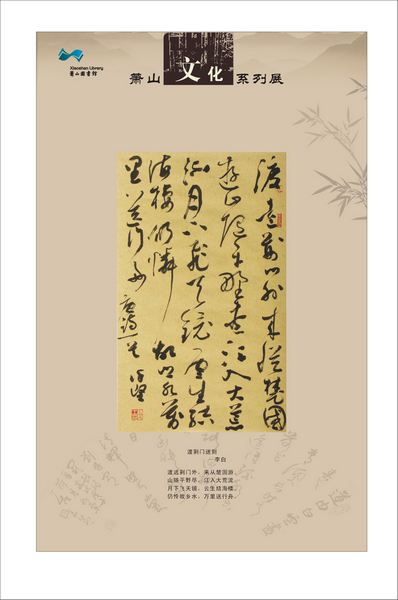 Xiaoshan Library
蕭山圖書館
萧山 文化 系列展
渡遠荆门外来從楚國
遊山隨平野尽江入大荒
流月下飞天镜雲生结
海樓仍憐故乡水萬
里送行舟
唐诗一首
渡荆门送别
——李白
渡远荆门外,来从楚国游。
山随平野尽,江入大荒流。
月下飞天镜,云生结海楼。
仍怜故乡水,万里送行舟。